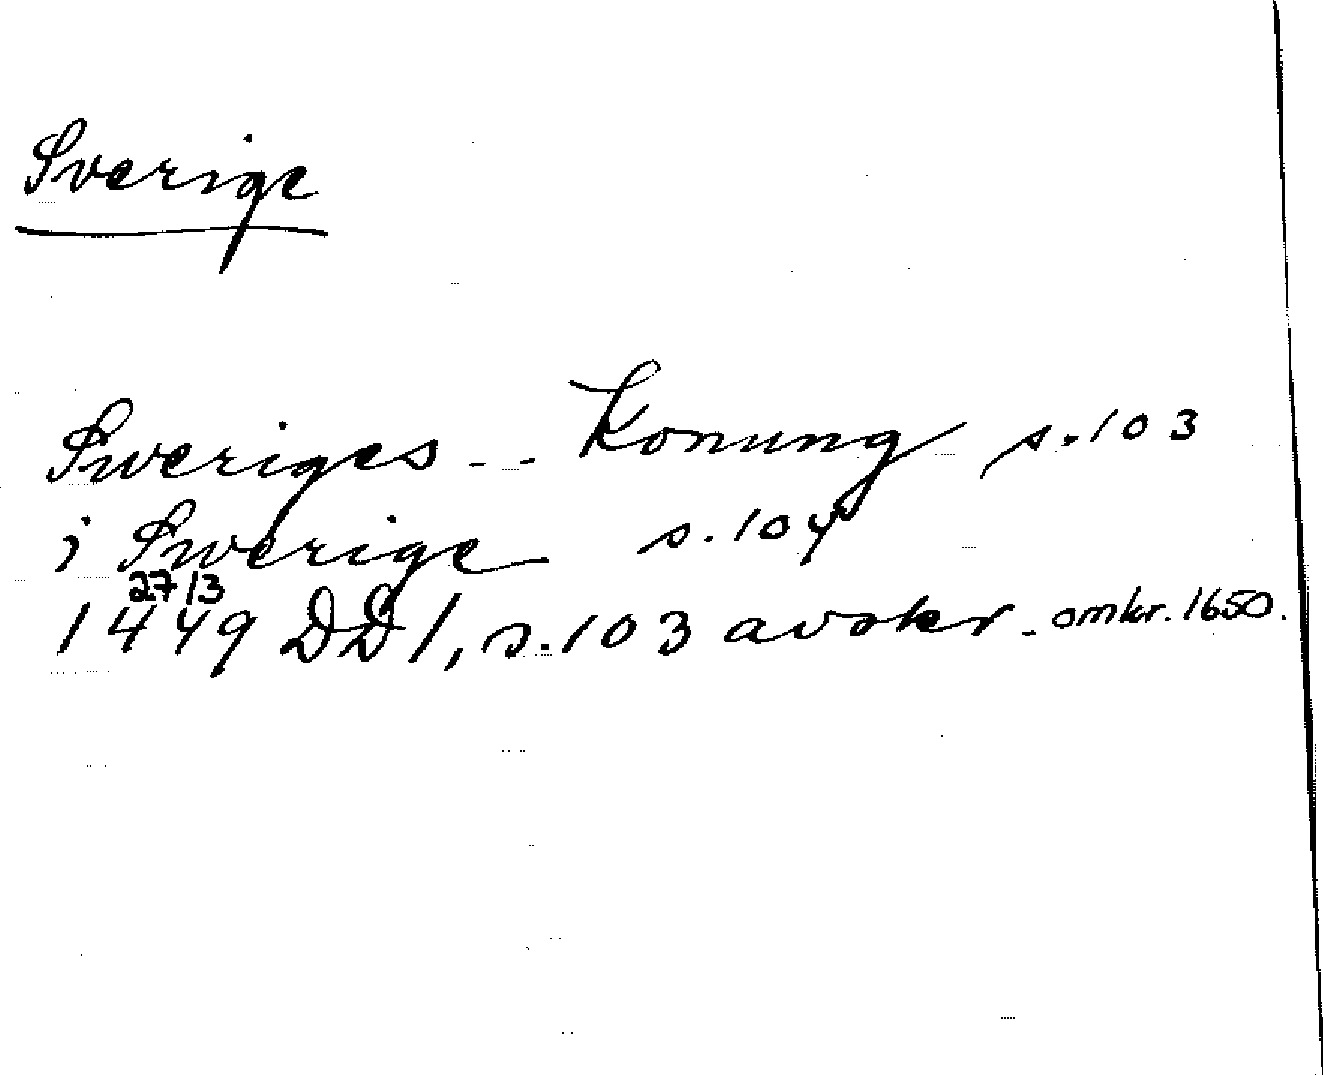 Sverige
Sweriges -- Konung s. 103
i Swerige s. 104
27/3
1449 DD1, s. 103 avskr. omkr. 1650.